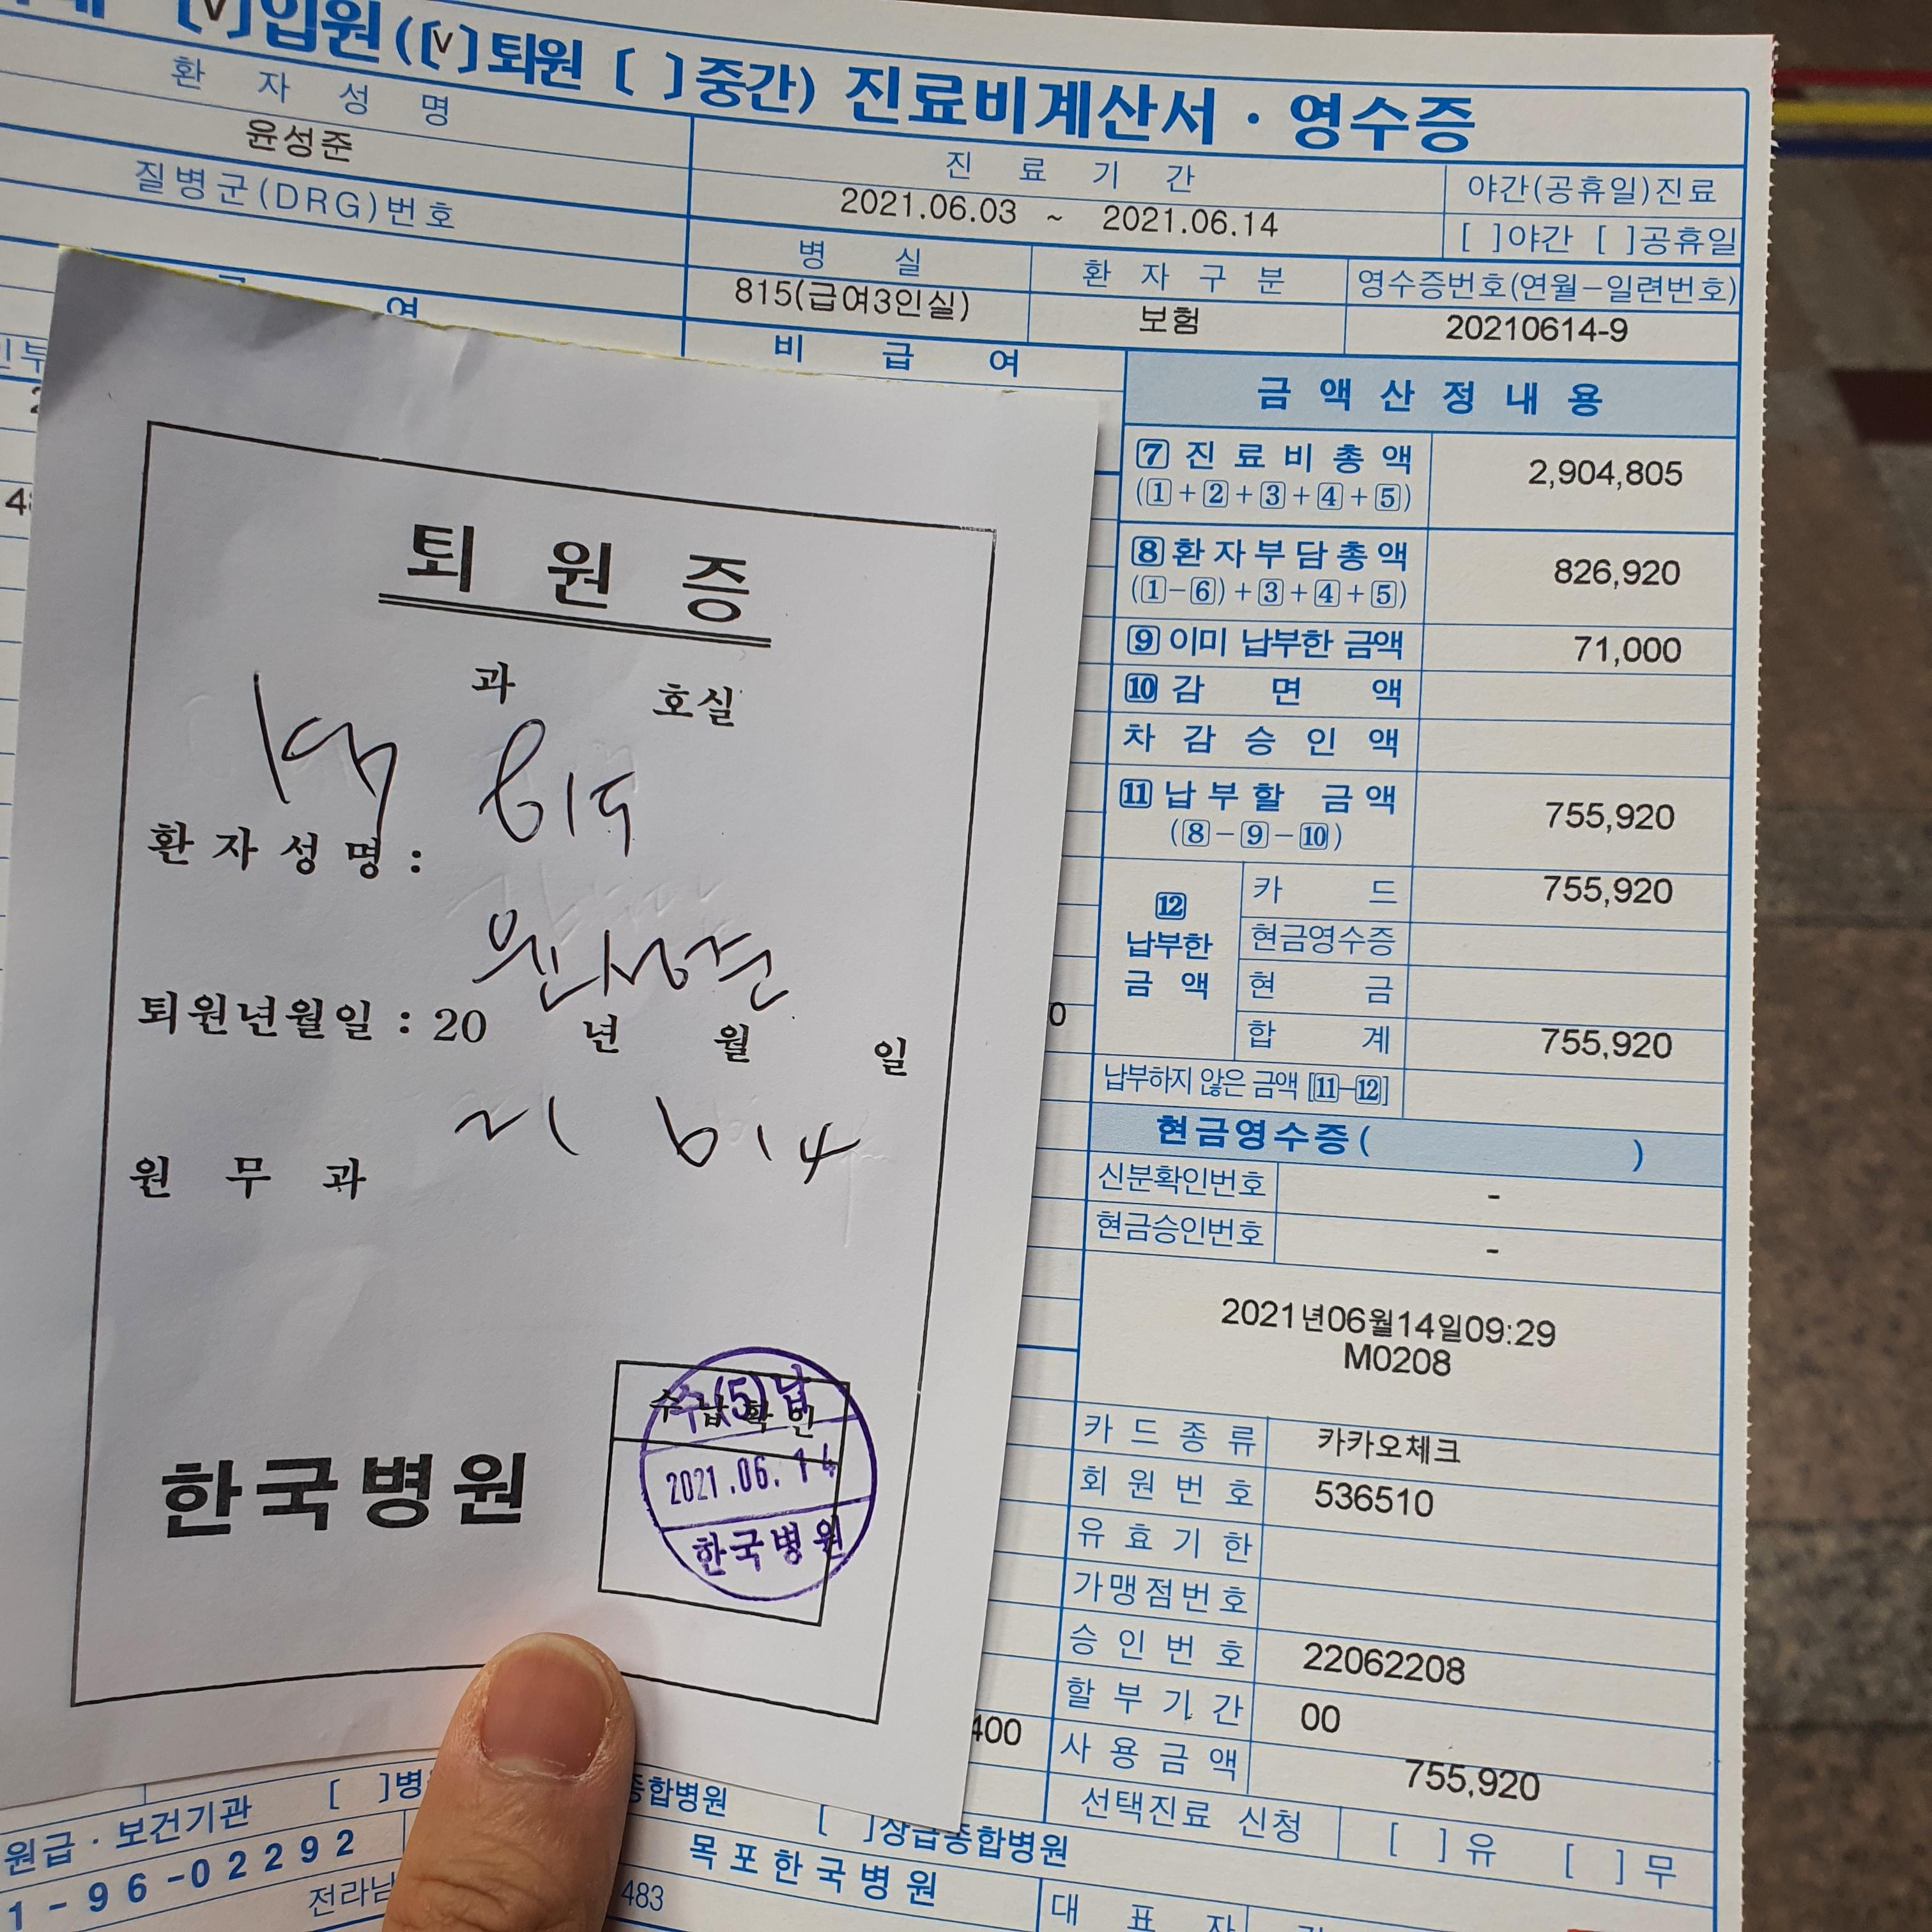 [v]입원([v]퇴원 [ ]중간) 진료비계산서 · 영수증
환 자 성 명
진 료 기 간
야간(공휴일)진료
윤성준
2021.06.03 ~ 2021.06.14
[ ]야간 [ ]공휴일
질병군(DRG)번호
병 실
환 자 구 분
영수증번호(연월-일련번호)
815(급여3인실)
보험
20210614-9
여
비 급 여
금 액 산 정 내 용
7 진 료 비 총 액
(1+2+3+4+5)
2,904,805
8 환자부담총액
(1-6)+3+4+5)
826,920
9 이미 납부한 금액
71,000
10 감 면 액
차 감 승 인 액
11 납 부 할 금 액
(8-9-10)
755,920
12 납부한 금 액
카 드
755,920
현금영수증
현 금
합 계
755,920
납부하지 않은 금액 [11-12]
현금영수증( )
신분확인번호
-
현금승인번호
-
2021년06월14일09:29
M0208
카 드 종 류
카카오체크
회 원 번 호
536510
유 효 기 한
가맹점번호
승 인 번 호
22062208
할 부 기 간
00
400
사 용 금 액
755,920
선택진료 신청
[ ]유 [ ]무
퇴 원 증
과 호실
815
환 자 성 명 :
윤성준
퇴원년월일 : 20 년 월 일
21 6 14
원 무 과
한국병원
수 납 확 인
수(5)납
2021.06.14
한국병원
원급 · 보건기관
[ ]병
종합병원
[ ]상급종합병원
1-96-02292
목포한국병원
전라남
483
대 표 자